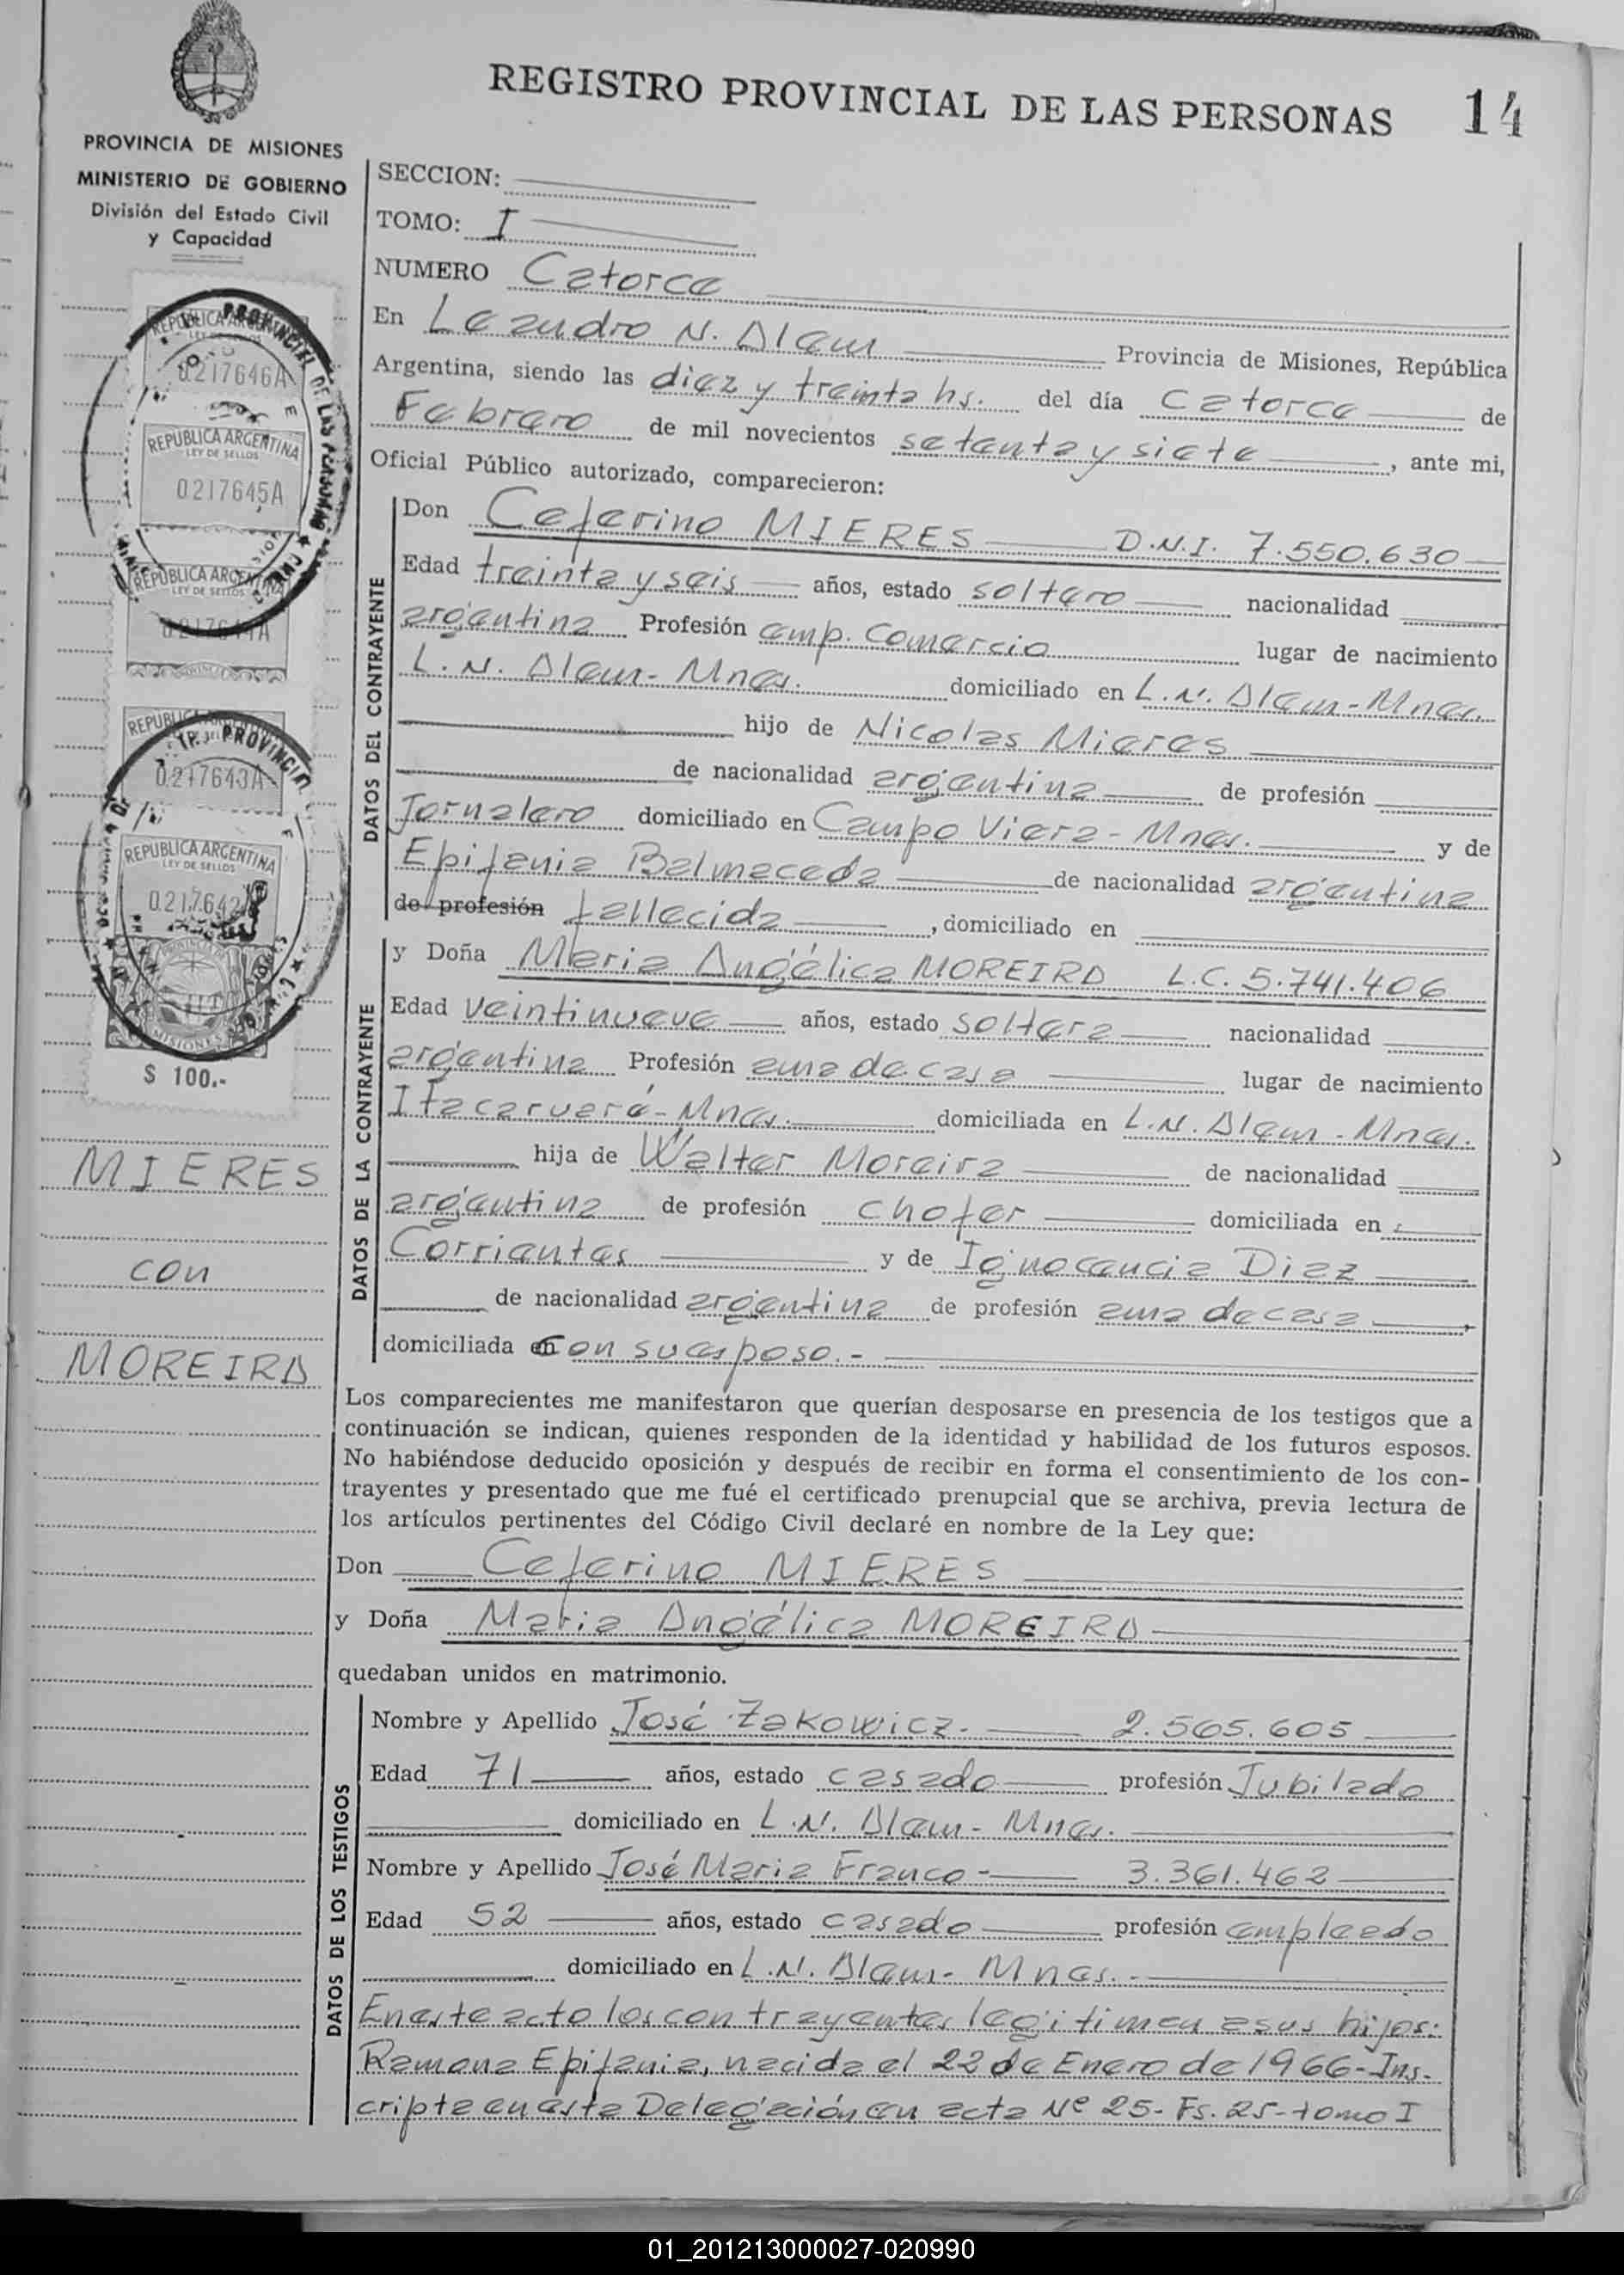 REGISTRO PROVINCIAL DE LAS PERSONAS 14
PROVINCIA DE MISIONES
MINISTERIO DE GOBIERNO
División del Estado Civil
y Capacidad
SECCION:
TOMO: I
NUMERO Catorce
En Leandro N. Alem Provincia de Misiones, República
Argentina, siendo las diez y treinta hs. del día Catorce de
Febrero de mil novecientos setenta y siete, ante mi,
Oficial Público autorizado, comparecieron:
DATOS DEL CONTRAYENTE
Don Ceferino MIERES D.N.I. 7.550.630
Edad treinta y seis años, estado soltero nacionalidad
argentina Profesión emp. Comercio lugar de nacimiento
L. N. Alem - Mnes. domiciliado en L. N. Alem - Mnes.
hijo de Nicolas Mieres
de nacionalidad argentina de profesión
Jornalero domiciliado en Campo Viera - Mnes. y de
Epifania Balmaceda de nacionalidad argentina
de profesión fallecida, domiciliado en
DATOS DE LA CONTRAYENTE
y Doña Maria Angélica MOREIRA L.C. 5.741.406
Edad veintinueve años, estado soltera nacionalidad
argentina Profesión ama de casa lugar de nacimiento
Itacaruaré - Mnes. domiciliada en L. N. Alem - Mnes.
hija de Walter Moreira de nacionalidad
argentina de profesión chofer domiciliada en
Corrientes y de Ignocencia Diaz
de nacionalidad argentina de profesión ama de casa,
domiciliada con su esposo.-
Los comparecientes me manifestaron que querían desposarse en presencia de los testigos que a
continuación se indican, quienes responden de la identidad y habilidad de los futuros esposos.
No habiéndose deducido oposición y después de recibir en forma el consentimiento de los con-
trayentes y presentado que me fué el certificado prenupcial que se archiva, previa lectura de
los artículos pertinentes del Código Civil declaré en nombre de la Ley que:
Don Ceferino MIERES
y Doña Maria Angélica MOREIRA
quedaban unidos en matrimonio.
DATOS DE LOS TESTIGOS
Nombre y Apellido José Zakowicz.- 2.565.605
Edad 71 años, estado casado profesión Jubilado
domiciliado en L. N. Alem - Mnes.
Nombre y Apellido José Maria Franco - 3.361.462
Edad 52 años, estado casado profesión empleado
domiciliado en L. N. Alem - Mnes. -
En este acto los contrayentes legitimen a sus hijos:
Ramona Epifania, nacida el 22 de Enero de 1966 - Ins-
cripta en ésta Delegación en acta Nº 25 - Fs. 25 - tomo I
REPUBLICA ARGENTINA
LEY DE SELLOS
0217646A
REPUBLICA ARGENTINA
LEY DE SELLOS
0217645A
REPUBLICA ARGENTINA
LEY DE SELLOS
0217643A
REPUBLICA ARGENTINA
LEY DE SELLOS
MISIONES
$ 100.-
MIERES
con
MOREIRA
01_201213000027-020990